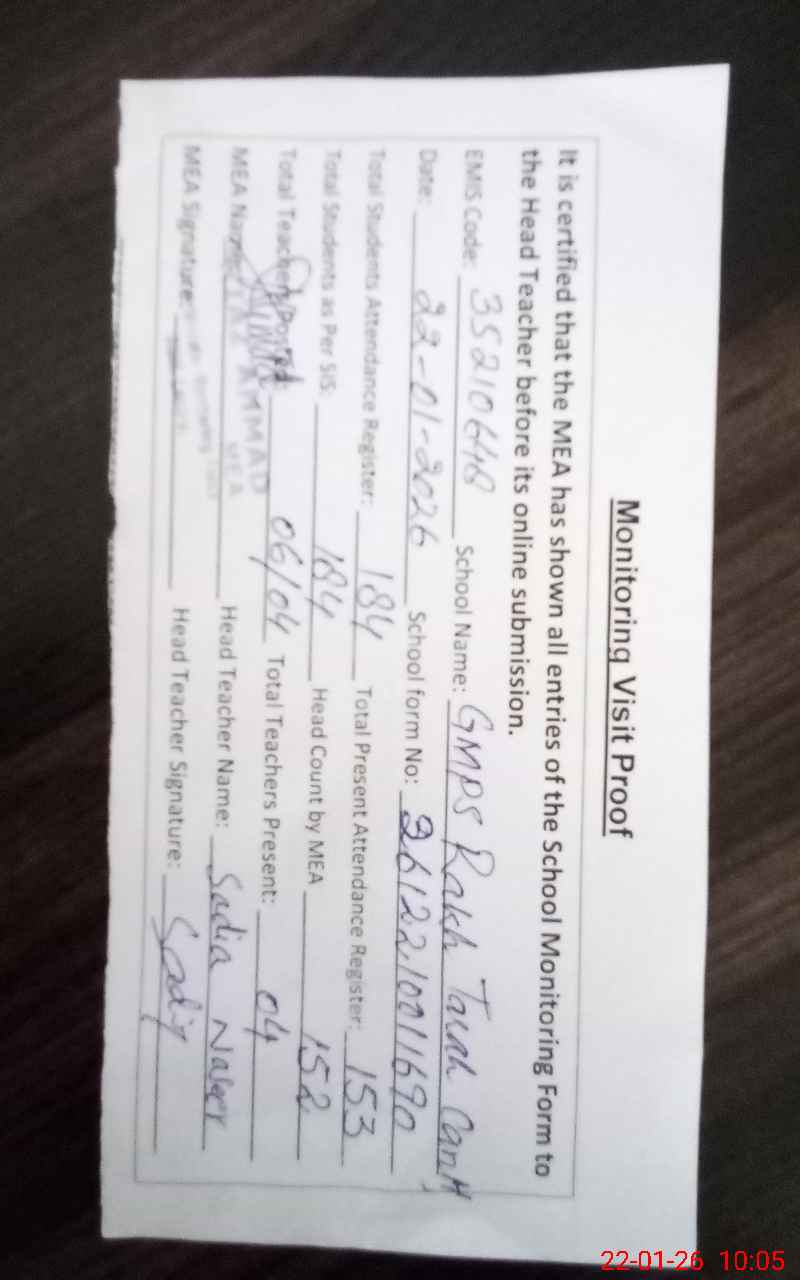 Monitoring Visit Proof
It is certified that the MEA has shown all entries of the School Monitoring Form to
the Head Teacher before its online submission.
EMIS Code: 35210648 School Name: GMPS Rakh Cantt
Date: 22-01-2026 School form No: 2612210011690
Total Students Attendance Register: 184 Total Present Attendance Register: 153
Total Students as Per SIS: 184 Head Count by MEA 152
Total Teachers Posted: 06/04 Total Teachers Present: 04
MEA Name: Head Teacher Name: Sadia
MEA
MEA Signature: Head Teacher Signature: Sadia
22-01-26 10:05